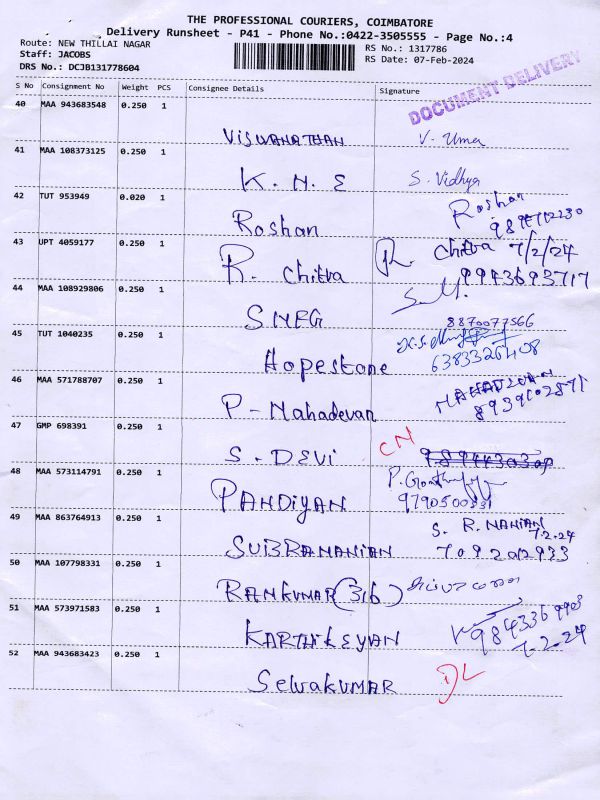 THE PROFESSIONAL COURIERS, COIMBATORE
Delivery Runsheet - P41 - Phone No.:0422-3505555 - Page No.:4
Route: NEW THILLAI NAGAR
Staff: JACOBS
DRS No.: DCJB131778604
RS No.: 1317786
RS Date: 07-Feb-2024
DOCUMENT DELIVERY
S No Consignment No Weight PCS Consignee Details Signature
40 MAA 943683548 0.250 1
VISWANATHAN V. Uma
41 MAA 108373125 0.250 1
K. N. E S. Vidhya
42 TUT 953949 0.020 1
Roshan Roshan
43 UPT 4059177 0.250 1
R. Chitra R. Chitra 7/2/24
9943693717
44 MAA 108929806 0.250 1
SMFG
8870077566
45 TUT 1040235 0.250 1
Hopestone
6383326408
46 MAA 571788707 0.250 1
P - Mahadevan MAHADEVAN
8939102871
47 GMP 698391 0.250 1
S. DEVI CN
48 MAA 573114791 0.250 1
PANDIYAN
9790500331
49 MAA 863764913 0.250 1
S. R. MANIAN
7.2.24
SUBRAMANIAN 7092202933
50 MAA 107798331 0.250 1
RAMKUMAR (316)
51 MAA 573971583 0.250 1
KARTHIKEYAN
7.2.24
52 MAA 943683423 0.250 1
Selvakumar DL